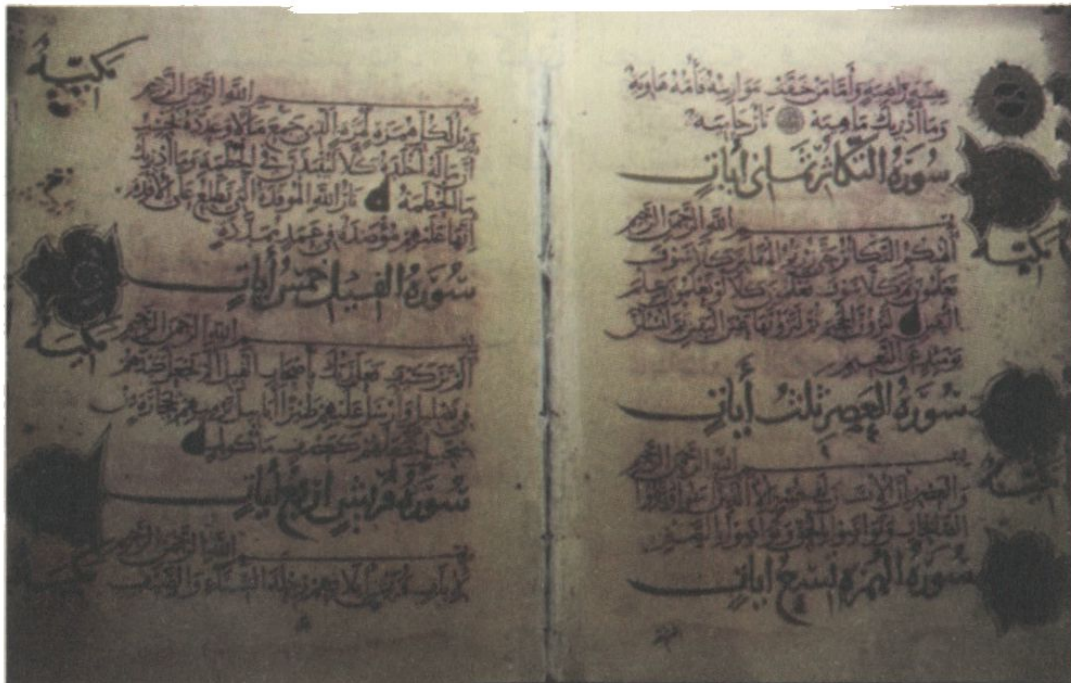 عيشة راضية وأما من خفت موازينه فأمه هاوية
وما أدريك ما هيه نار حامية
سورة التكاثر ثماني أيات
مكية
بسم الله الرحمن الرحيم
ألهكم التكاثر حتى زرتم المقابر كلا سوف
تعلمون ثم كلا سوف تعلمون كلا لو تعلمون علم
اليقين لترون الجحيم ثم لترونها عين اليقين ثم لتسئلن
يومئذ عن النعيم
سورة العصر ثلث أيات
مكية
بسم الله الرحمن الرحيم
والعصر إن الإنسان لفي خسر إلا الذين آمنوا وعملوا
الصالحات وتواصوا بالحق وتواصوا بالصبر
سورة الهمزة تسع أيات
مكية
بسم الله الرحمن الرحيم
ويل لكل همزة لمزة الذي جمع مالا وعدده يحسب
أن ماله أخلده كلا لينبذن في الحطمة وما أدريك
ما الحطمة نار الله الموقدة التي تطلع على الأفئدة
إنها عليهم مؤصدة في عمد ممددة
سورة الفيل خمس أيات
مكية
بسم الله الرحمن الرحيم
ألم تر كيف فعل ربك بأصحاب الفيل ألم يجعل كيدهم
في تضليل وأرسل عليهم طيرا أبابيل ترميهم بحجارة من
سجيل فجعلهم كعصف مأكول
سورة قريش أربع أيات
مكية
بسم الله الرحمن الرحيم
لإيلاف قريش إيلافهم رحلة الشتاء والصيف